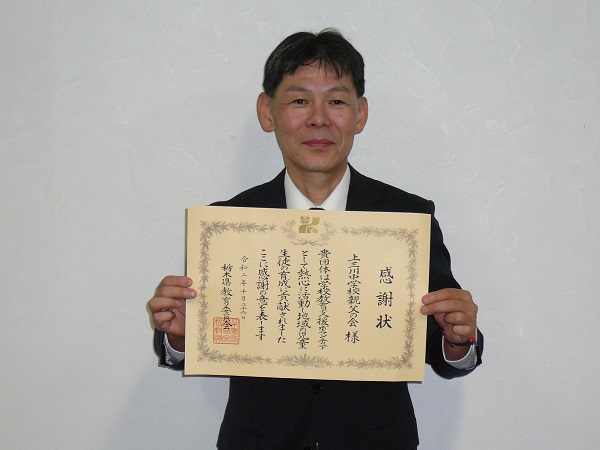 感謝状
上三川中学校親父の会 様
貴団体は学校教育支援ボランティア
として熱心に活動し地域の児童
生徒の育成に貢献されました
ここに感謝の意を表します
令和二年十月二十六日
栃木県教育委員会